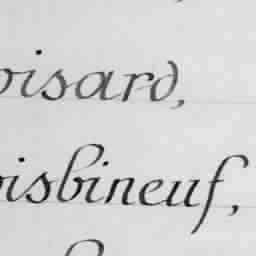 oisard,
oisbineuf,